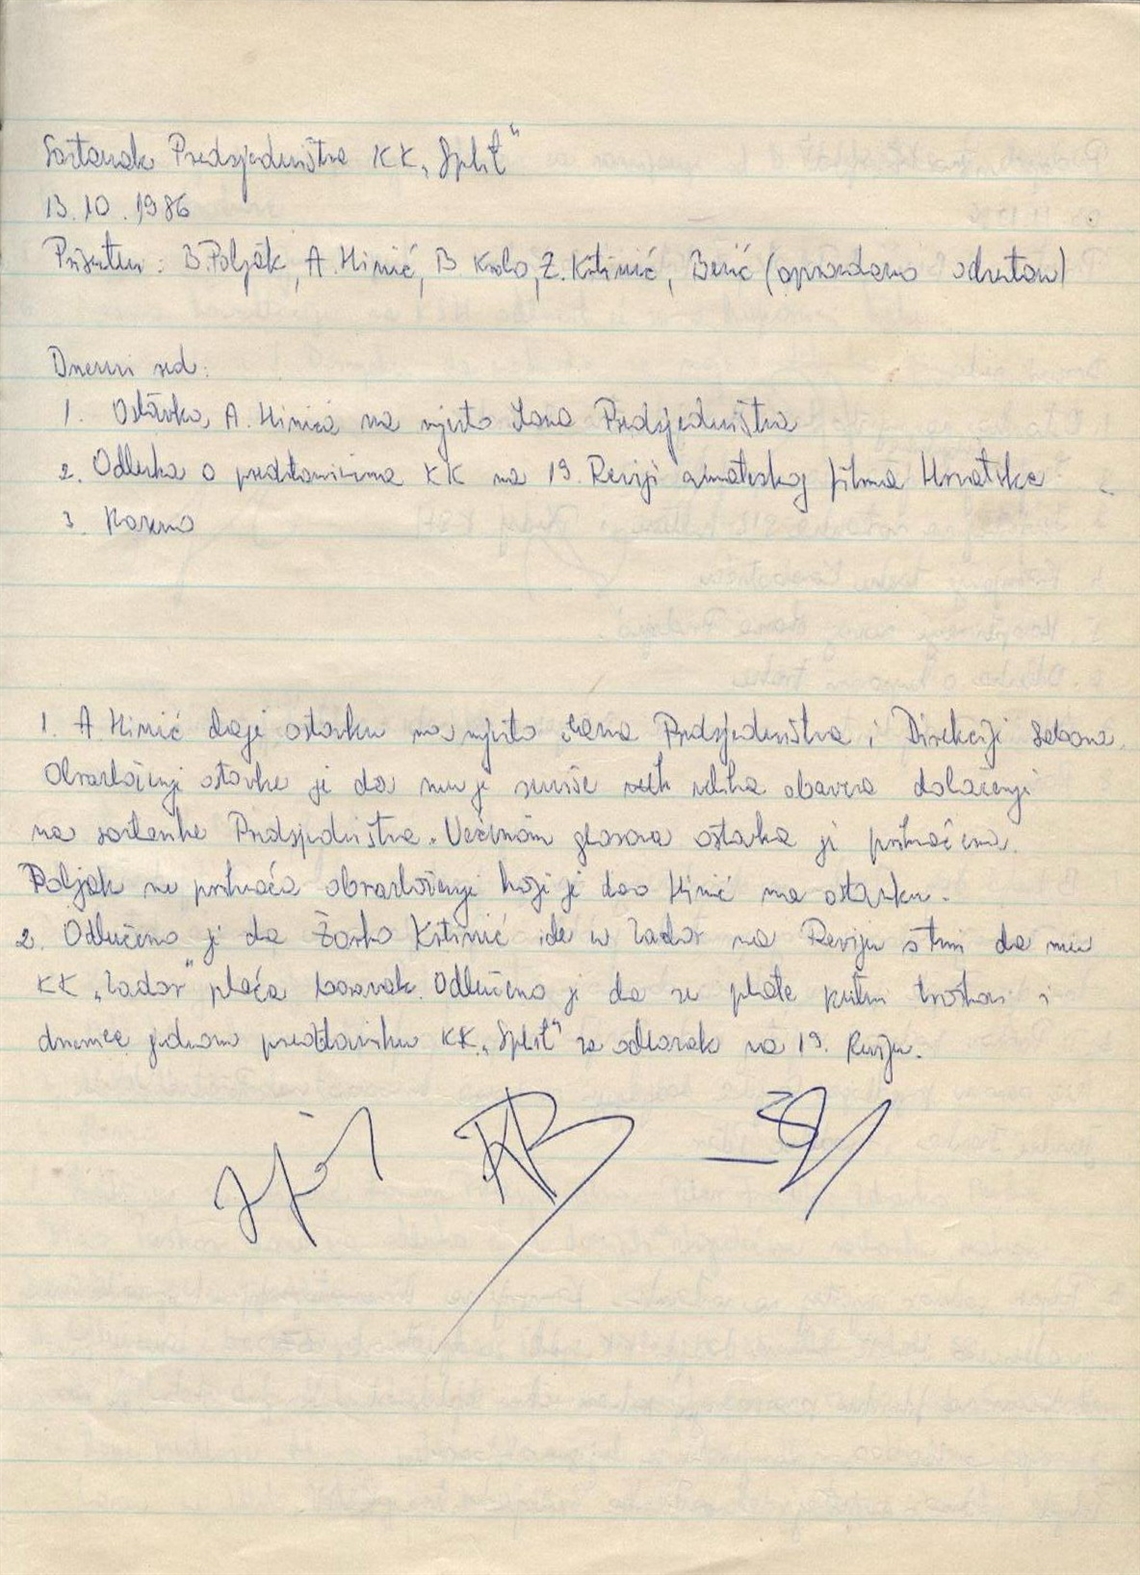 Sastanak Predsjedništva KK „Split"
13.10.1986
Prisutni: B. Poljak, A. Himić, B Krolo, Ž. Krstinić, Berić (opravdano odsutan)
Dnevni red:
1. Ostavka, A. Himića na mjesto člana Predsjedništva
2. Odluka o predstavnicima KK na 19. Reviji amaterskog filma Hrvatske
3. Razno
1. A Himić daje ostavku na mjesto člana Predsjedništva i Direkciji Sabora.
Obrazloženje ostavke je da mu je suviše velika obaveza dolaženje
na sastanke Predsjedništva. Većinom glasova ostavka je prihvaćena.
Poljak ne prihvaća obrazloženje koje je dao Himić na ostavku.
2. Odlučeno je da Žarko Krstinić ide u Zadar na Reviju s tim da mu
KK „Zadar" plaća boravak. Odlučeno je da se plate putni troškovi i
dnevnice jednom predstavniku KK „Split" za odlazak na 19. Reviju.